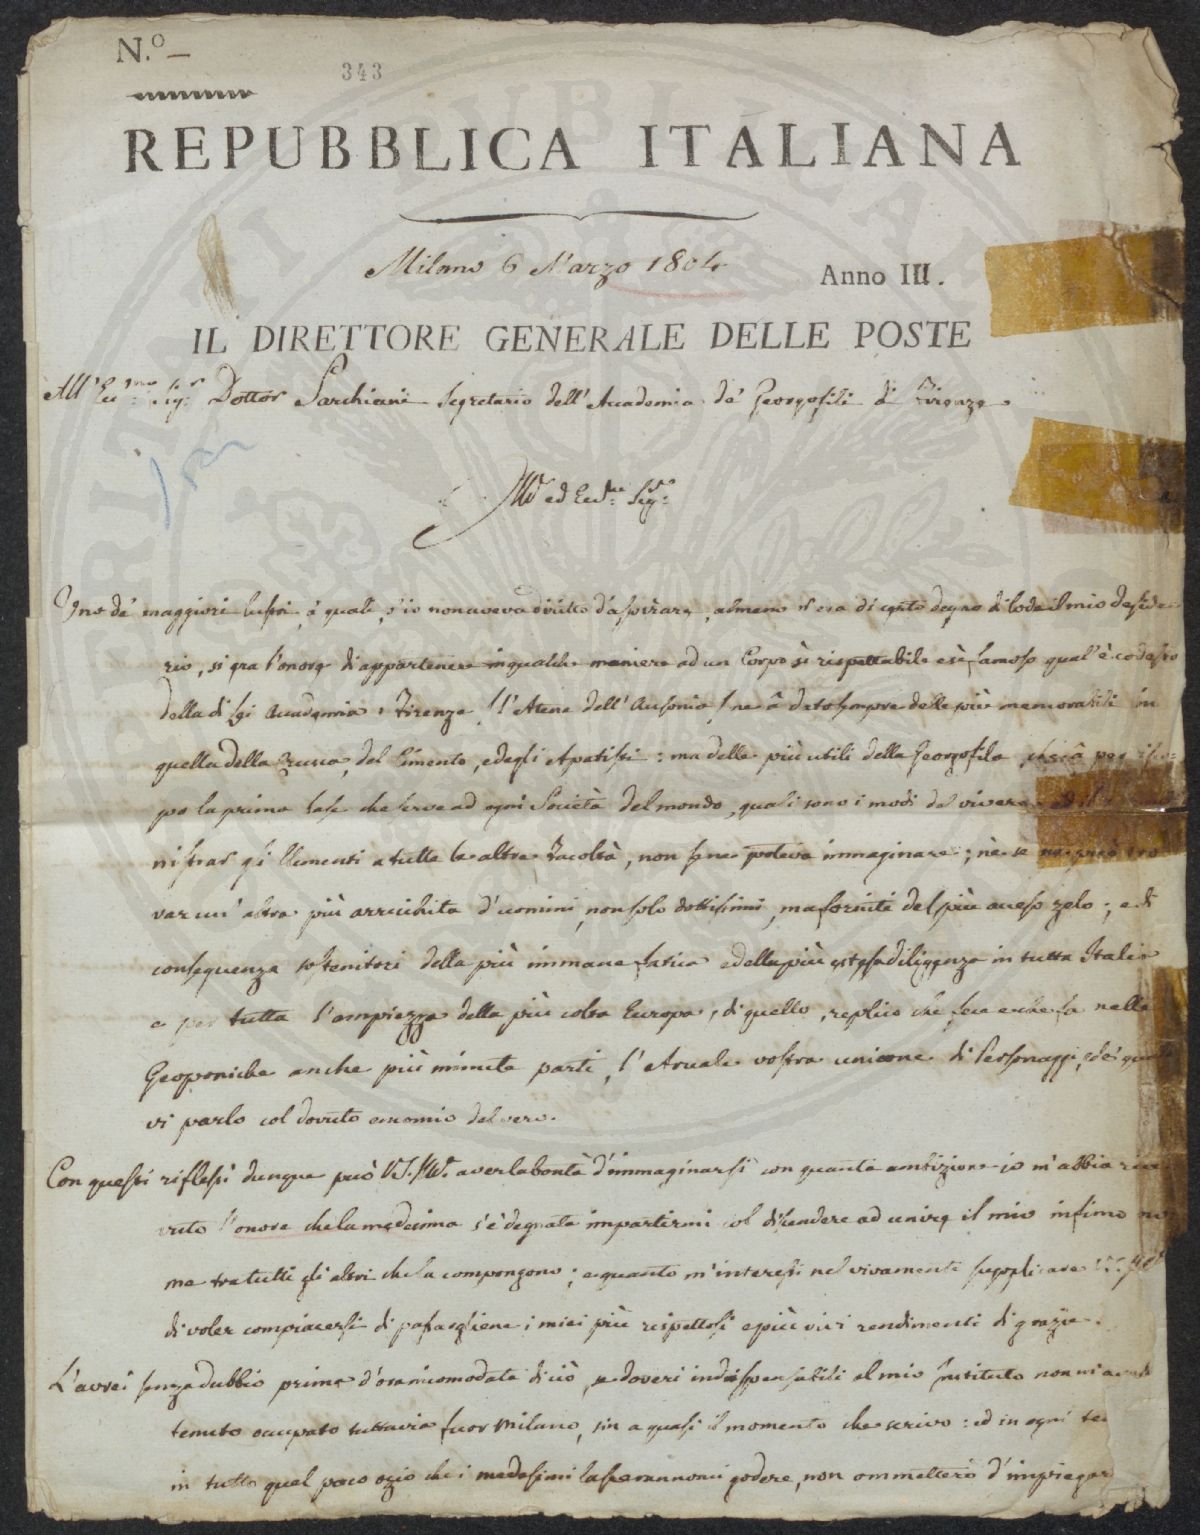 N.º —
343
REPUBBLICA ITALIANA
Milano 6 Marzo 1804 Anno III.
IL DIRETTORE GENERALE DELLE POSTE
All' Ecc.mo Sig.r Dottor Sarchiani Segretario dell'Accademia de' Georgofili di Firenze.
Ill.e ed Ecc.mo Sig.e
Uno de' maggiori lustri, a' quali, s'io non aveva diritto d'aspirare, almeno n'era di certo degno di lode il mio deside
rio, si era l'onore di appartenere in qualche maniera ad un Corpo sì rispettabile e sì famoso qual'è codesto
della di Lei Accademia. Firenze (l'Atene dell'Ausonia) ne à dato sempre delle più memorabili in
quella della Crusca, del Cimento, e degli Apatisti: ma delle più utili della Georgofila, che à per isco-
po la prima base che serve ad ogni Società del mondo, quali sono i modi del vivere, ed il
nistrar gli Elementi a tutte le altre Facoltà, non se ne poteva immaginare; nè se ne può tro
var un'altra più arricchita d'uomini, non solo dottissimi, ma forniti del più acceso zelo; e di
conseguenza sostenitori della più immane fatica e della più estesa diligenza in tutta Italia
e per tutta l'ampiezza della più colta Europa, di quello, replico che fece e che fa nelle
Geoponiche anche più minute parti, l'Attuale vostra unione di Personaggi, de' quali
vi parlo col dovuto encomio del vero.
Con questi riflessi dunque può V.S. Ill.e aver la bontà d'immaginarsi con quanta ambizione io m'abbia rice
vuto l'onore che la medesima s'è degnata impartirmi col discendere ad unire il mio infimo no
me tra tutti gli altri che la compongono; e quanto m'interessi nel vivamente supplicare V.S. Ill.e
di voler compiacersi di passargliene i miei più rispettosi e più vivi rendimenti di grazie.
L'avrei senza dubbio prima d'ora incomodata di ciò, se doveri indispensabili al mio Instituto non m'avess
tenuto occupato tuttavia fuor Milano, sin a quasi il momento che scrivo: ed in ogni te
in tutto quel poco ozio che i medesimi lasceranno mi godere, non ommetterò d'impiegar